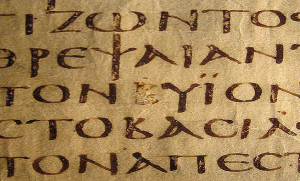 ΤΙΖΩΝΤΟΣ
ΘΡΕΨΑΙΑΝΤ
ΤΟΝΕΥΪΟΝ
ϹΤΟΒΑϹΙΛ
ΤΟΝΑΠΕϹΤ